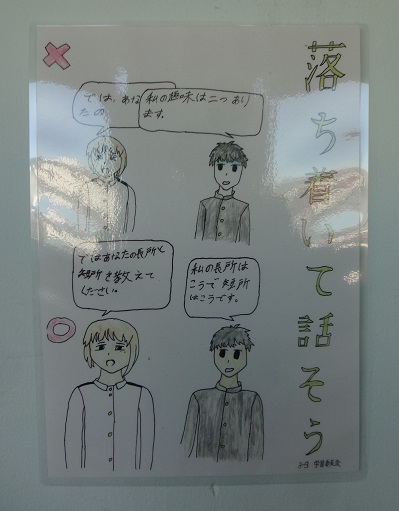 落ち着いて話そう
では、あな
たの
私の趣味は二つあり
ます。
ではあなたの長所と
短所を教えて
ください。
私の長所は
こうで短所
はこうです。
学習委員会